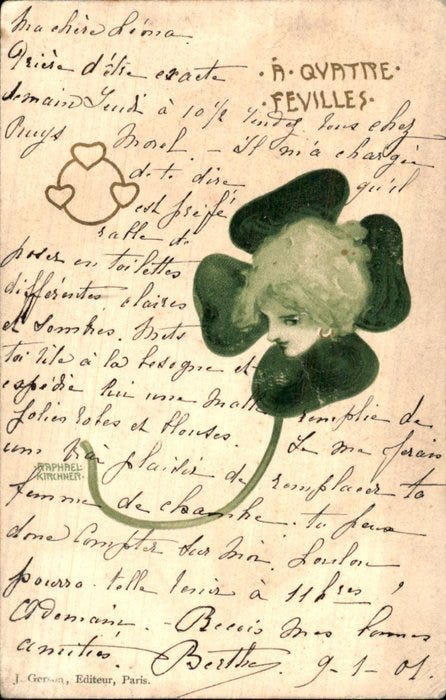 Ma chère Léona.
Prière d'être exacte
demain Jeudi à 10½ tous chez
À QVATRE
FEVILLES
Puys Morel. - Il m'a chargée
de te dire qu'il
est préfé
rable de
poser en toilettes
différentes, claires
et sombres. Mets
toi vite à la besogne et
expédie lui une malle remplie de
jolies robes et blouses. Je me ferais
un vrai plaisir de remplacer ta
RAPHAEL
KIRCHNER
femme de chambre. tu peux
donc compter sur moi. Loulou
pourra-t-elle venir à 11 hres ?
A demain. - Reçois mes bonnes
amitiés. Berthe 9-1-01.
J. Gerson, Editeur, Paris.